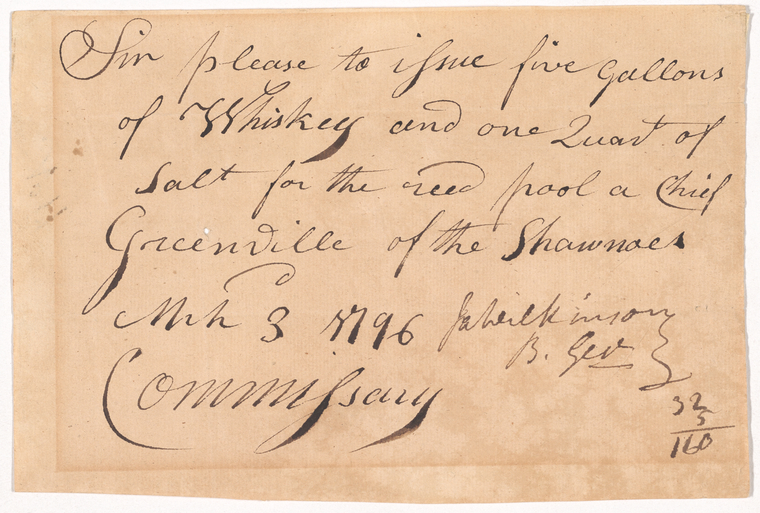 Sir please to issue five gallons
of Whiskey and one Quart of
Salt for the reed pool a Chief
Greenville of the Shawnoes
Mrh 3 1796 Ja Wilkinson
B. Gen
Commissary
32
5
160